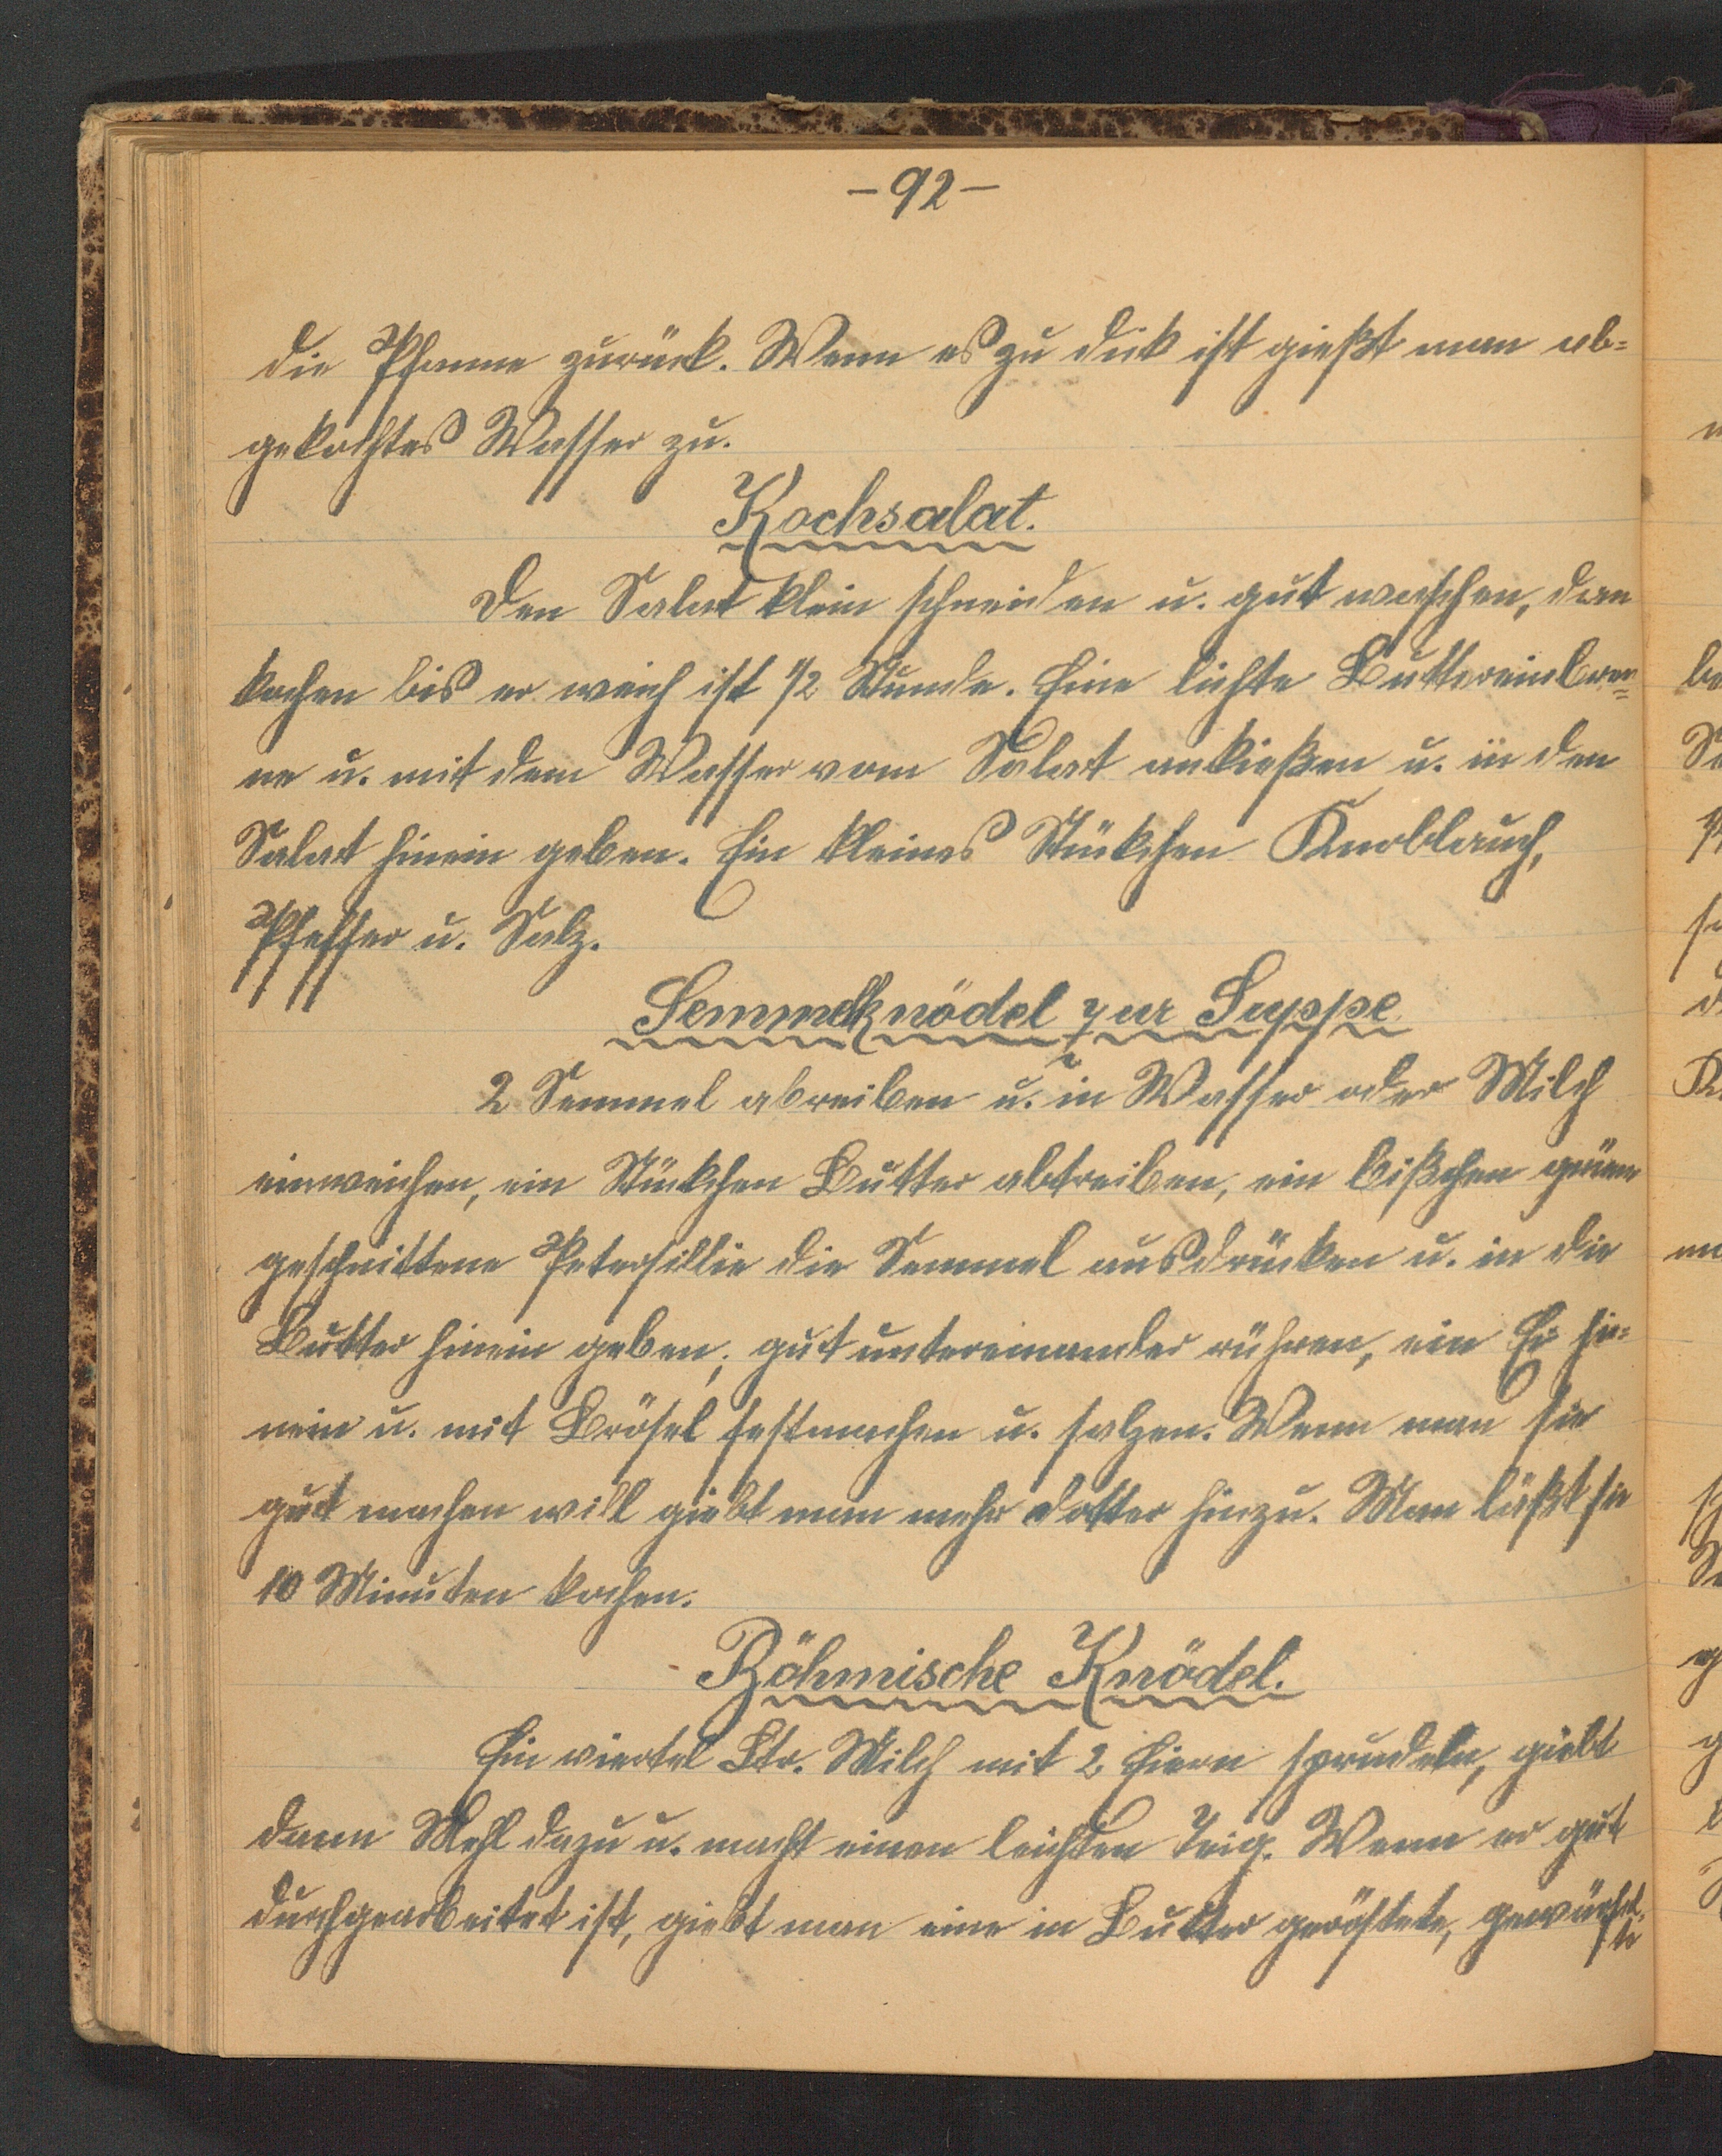 -92-
die Pfanne zurück. Wenn es zu dick ist gießt man ab=
gekochtes Wasser zu.
Kochsalat.
Den Salat klein schneiden u. gut waschen, dan
kochen bis er weich ist 1/2 Stunde. Eine lichte Buttereinbren=
ne u. mit dem Wasser vom Salat ankießen u. in den
Salat hinein geben. Ein kleines Stükchen Knoblauch,
Pfeffer u. Salz.
Semmelknödel zur Suppe
2 Semmel abreiben u. in Wasser oder Milch
einweichen, ein Stükchen Butter abtreiben, ein bißchen grüne
geschnittene Petersillie die Semmel ausdrücken u. in die
Butter hinein geben, gut untereinander rühren, ein Ei hi=
nein u. mit Brösel festmachen u. salzen. Wenn man sie
gut machen will giebt man mehr Dotter hinzu. Man läßt sie
10 Minuten kochen.
Böhmische Knödel.
Ein viertel Ltr. Milch mit 2 Eiern sprudeln, giebt
dann Mehl dazu u. macht einen leichten Teig. Wenn er gut
durchgearbeitet ist, giebt man eine in Butter geröstete, gewürfel-
te